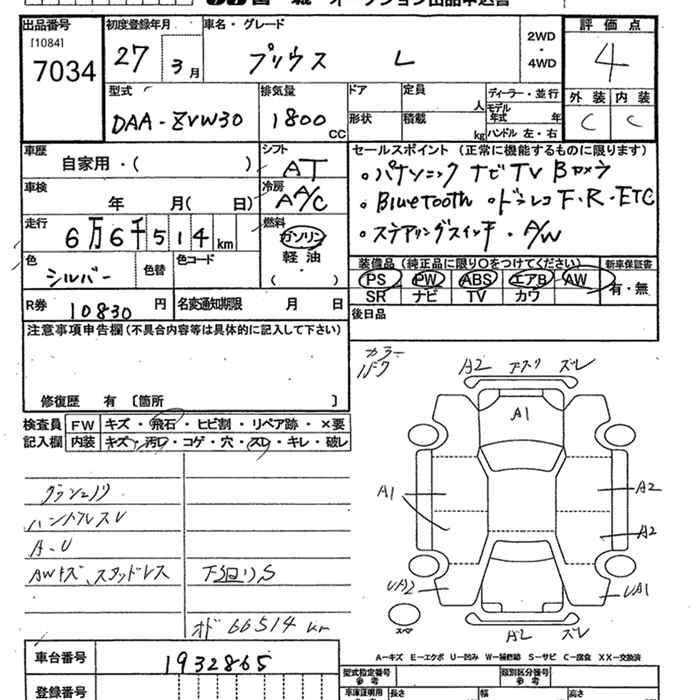 出品番号
[1084]
7034
初度登録年月
27 3月
車名・グレード
プリウス L
2WD
・
4WD
評価点
4
外装 内装
C C
型式
DAA-ZVW30
排気量
1800 CC
ドア
形状
定員
人
積載
kg
ディーラー・並行
モデル
年式 年
ハンドル 左・右
車歴
自家用・( )
シフト
AT
車検
年 月( 日)
冷房
A A/C
走行
6万6千514km
燃料
ガソリン
軽油
・
( )
色
シルバー
色替
色コード
R券
10830円
名変通知期限 月 日
セールスポイント (正常に機能するものに限ります)
。パナソニック ナビTV Bカメラ
。Bluetooth 。ドラレコ F・R・ETC
。ステアリングスイッチ・A/W
装備品 (純正品に限り○をつけてください)
新車保証書
PS PW ABS エアB AW
SR ナビ TV カワ
有・無
後日品
注意事項申告欄(不具合内容等は具体的に記入して下さい)
修復歴 有 〔箇所 〕
検査員
記入欄
FW キズ・飛石・ヒビ割・リペア跡・×要
内装 キズ・汚レ・コゲ・穴・スレ・キレ・破レ
ハンドルスレ
A・U
AWキズ、スタッドレス
下廻りS
オド 66514 km
車台番号
1932865
登録番号
A2 ズレ
A1
A1
A2
A2
UA2
UA1
スペア
A2 ズレ
A-キズ E-エクボ U-凹み W-補修跡 S-サビ C-腐食 XX-交換済
型式指定番号
参考
類別区分番号
参考
車庫証明用
長さ 幅 高さ